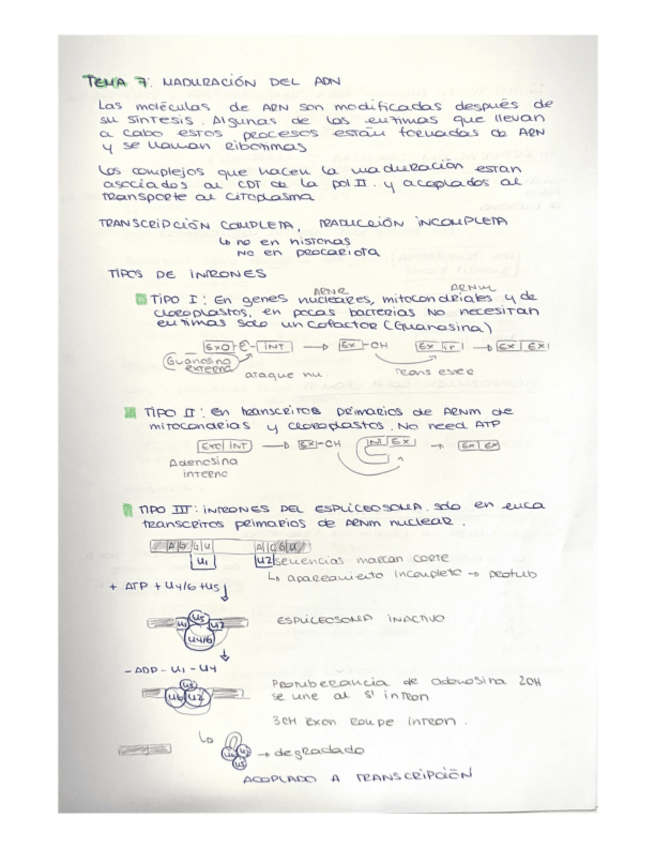 TEMA 7: MADURACIÓN DEL ADN
Las moléculas de ARN son modificadas después de
su síntesis. Algunas de las enzimas que llevan
a cabo estos procesos están formadas de ARN
y se llaman ribozimas
Los complejos que hacen la maduración estan
asociados al CDT de la pol II. y acoplados al
transporte al citoplasma
TRANSCRIPCIÓN COMPLETA, TRADUCCIÓN INCOMPLETA
↳ no en histonas
no en procariota
TIPOS DE INTRONES
ARNR ARNm
TIPO I: En genes nucleares, mitocondriales y de
cloroplastos, en pocas bacterias No necesitan
enzimas solo un cofactor (Guanosina)
EXO INT → EX-OH EX → EX EX
Guanosina
externa
ataque nu trans ester
TIPO II: en transcritos primarios de ARNm de
mitocondrias y cloroplastos. No need ATP
EXO INT → EX-OH INT EX → EX EX
Adenosina
interna
TIPO III: INTRONES DEL ESPLICEOSOMA. solo en euca
transcritos primarios de ARNm nuclear.
A G G U A C G U
U1 U2 secuencias marcan corte
↳ apareamiento incompleto → protub
+ ATP + U4/6 + U5
U1 U5 U2
U4/6
ESPLICEOSOMA INACTIVO
- ADP - U1 - U4
U5
U6 U2
Protuberancia de adenosina 2OH
se une al 5' intron
3OH exon rompe intron.
→ degradado
ACOPLADO A TRANSCRIPCIÓN